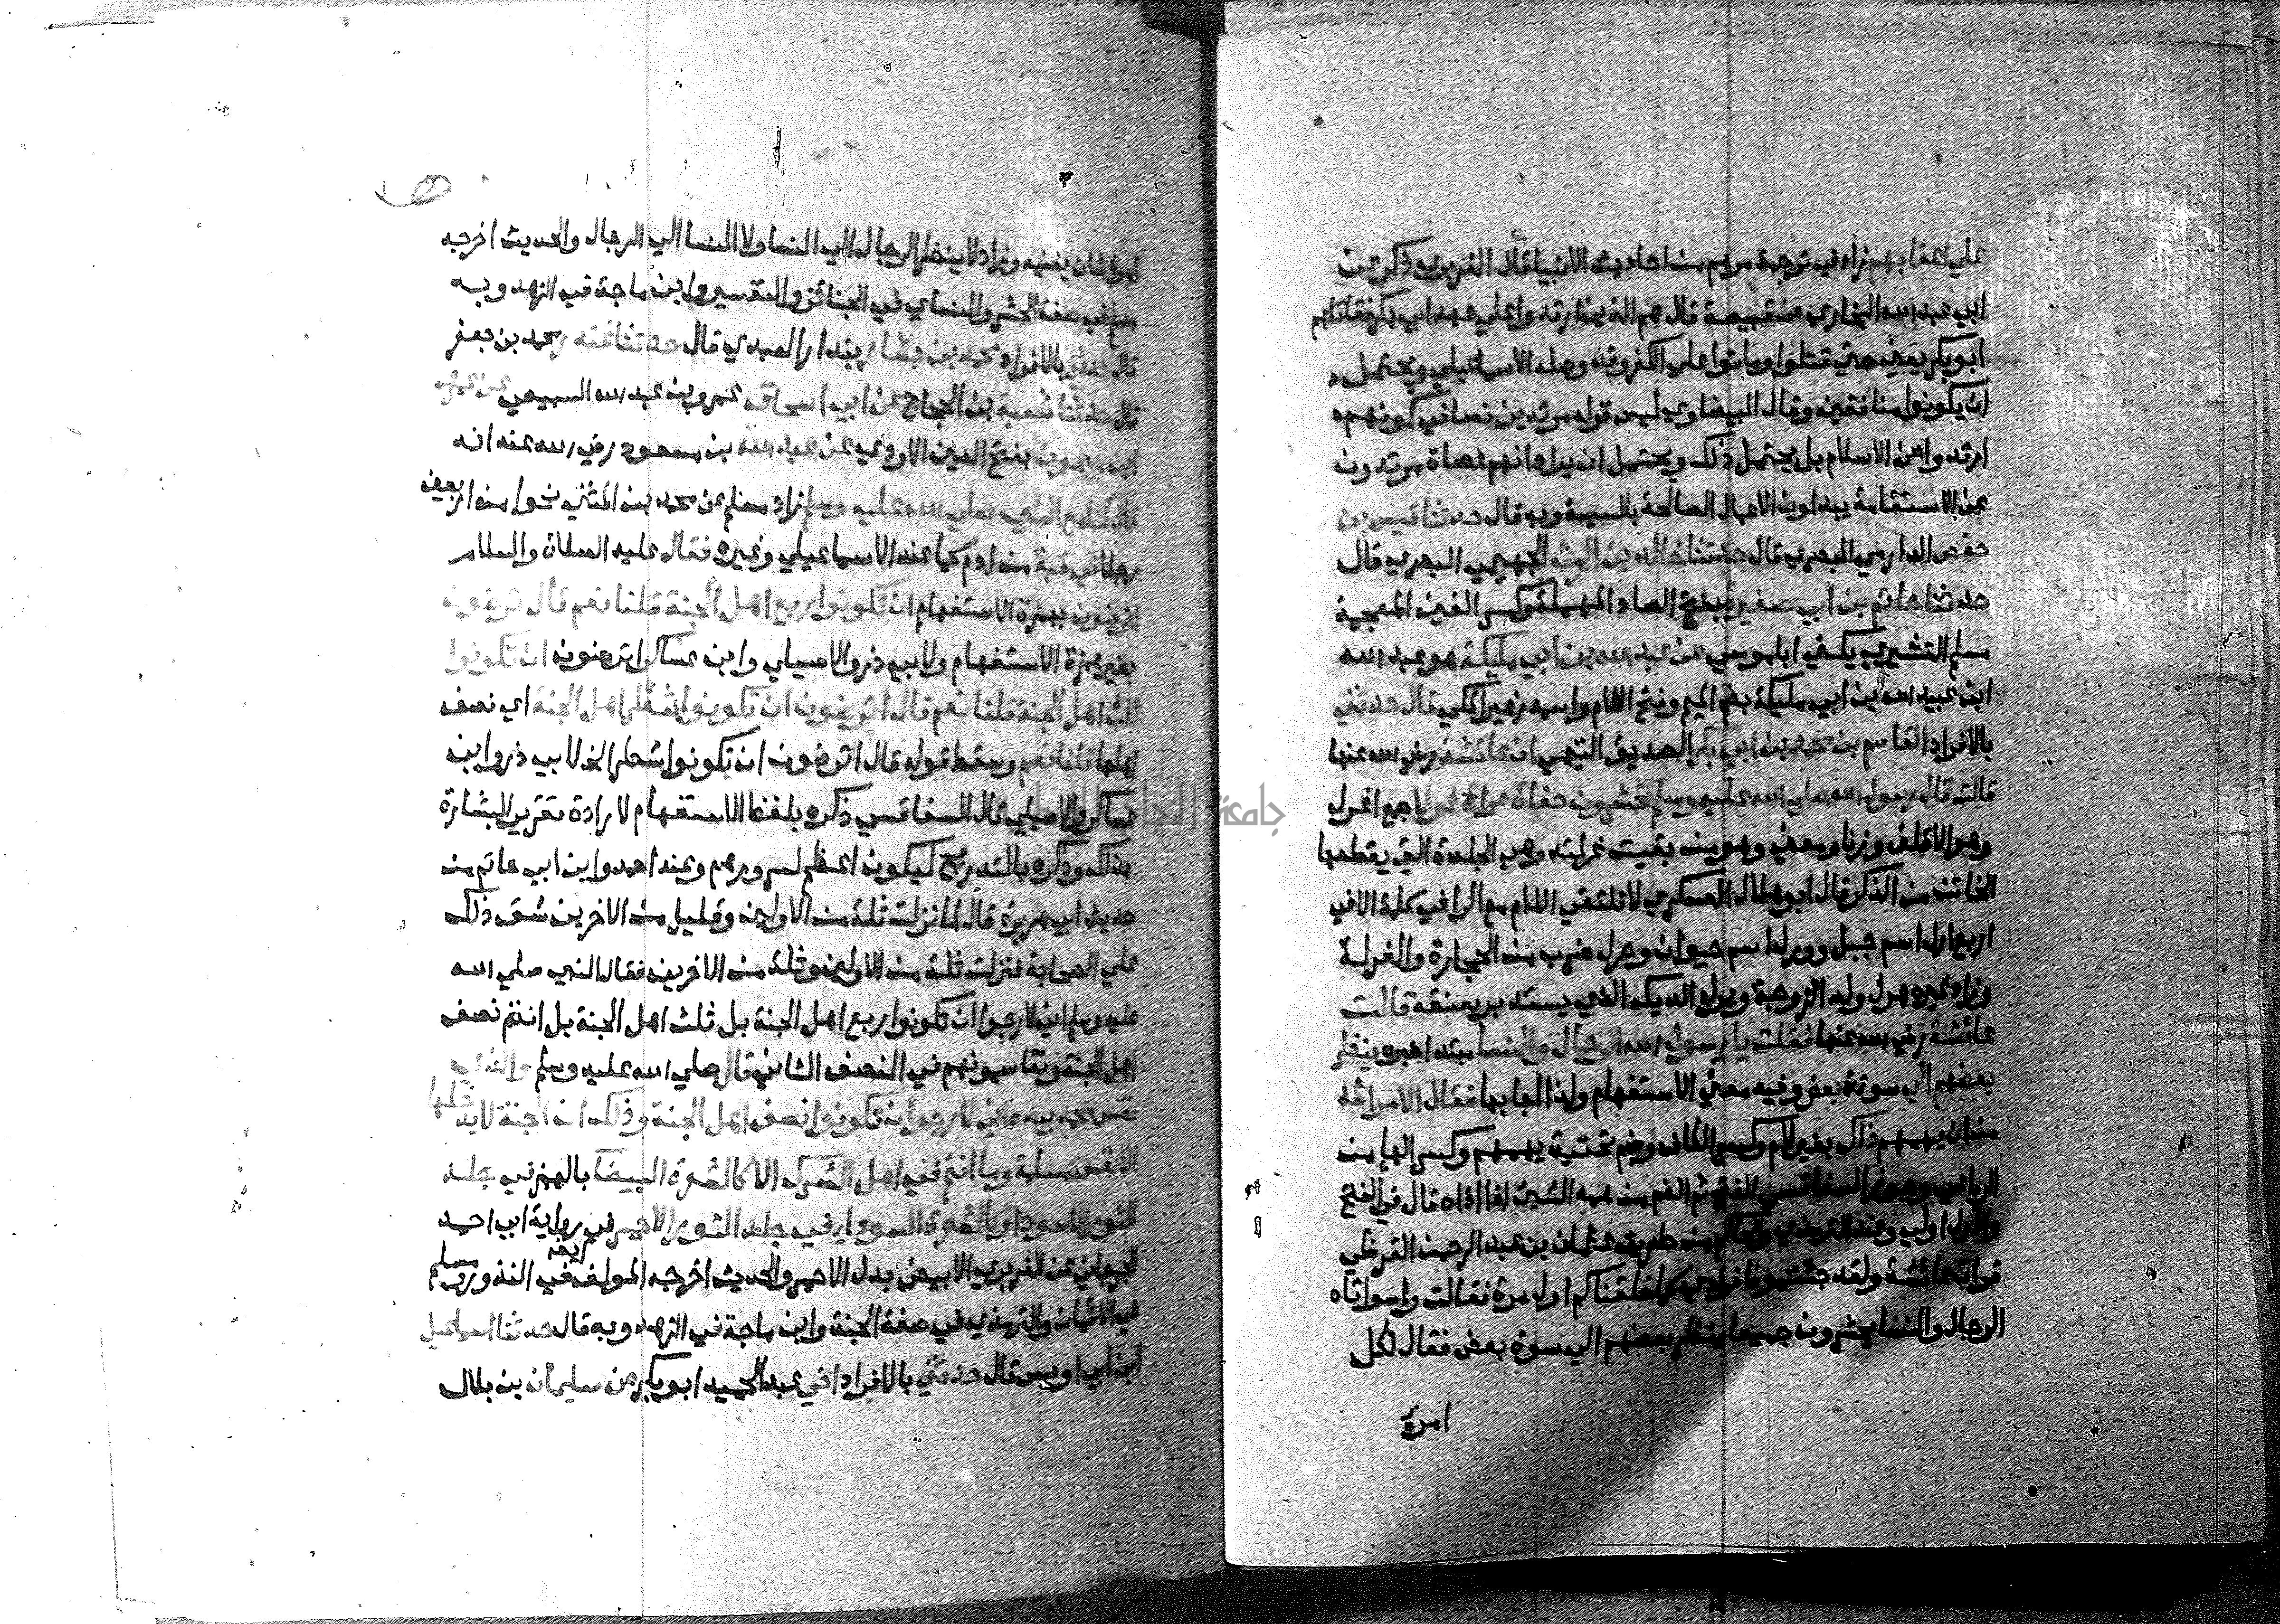 علي اعقابهم زاد في ترجمة مريم من احاديث الانبيا قال الفربري ذكر عن
ابي عبد الله البخاري عن قبيصة قال هم الذين ارتدوا علي عهد ابي بكر فقاتلهم
ابو بكر يعني حتي قتلوا وماتوا علي الكفر وقد وصله الاسماعيلي ويحتمل
ان يكونوا منافقين وقال البيضاوي ليس قوله مرتدين نصا في كونهم
ارتدوا عن الاسلام بل يحتمل ذلك ويحتمل ان يراد انهم عصاة مرتدون
عن الاستقامة يبدلون الاعمال الصالحة بالسيية وبه قال حدثنا قيس بن
حفص الدارمي البصري قال حدثنا خالد بن الحرث الجهيمي البصري قال
حدثنا حاتم بن ابي صغيرة بفتح الصاد المهملة وكسر الغين المعجمة
مسلم القشيري يكني ابا يونس عن عبد الله بن ابي مليكة هو عبد الله
ابن عبيد الله بن ابي مليكة بضم الميم وفتح اللام واسمه زهير المكي قال حدثني
بالافراد القاسم بن محمد بن ابي بكر الصديق التيمي ان عائشة رضي الله عنها
قالت قال رسول الله صلي الله عليه وسلم تحشرون حفاة عراة غرلا جمع اغرل
وهو الاقلف وزنا ومعني وهو من بقيت غرلته وهي الجلدة التي يقطعها
الخاتن من الذكر قال ابو هلال العسكري لا تلتقي اللام مع الرا في كلمة الا في
اربع ارل اسم جبل وورل اسم حيوان وجرل ضرب من الحجارة والغرلة
وزاد غيره هرل ولد الزوجة وبرل الديك الذي يستدير بعنقه قالت
عائشة رضي الله عنها فقلت يا رسول الله الرجال والنسا مبتدا خبره ينظر
بعضهم الي سوءة بعض وفيه معني الاستفهام ولذا اجابها فقال الامر اشد
من ان يهمهم ذاك بغير لام وكسر الكاف وضم تحتية يهمهم وكسر الها من
الرباعي وجوز السفاقسي الفتح ثم الضم من همه الشي اذا اذاه قال في الفتح
والاول اولي وعند الترمذي والحاكم من طريق عثمان بن عبد الرحمن القرظي
قرات عائشة ولقد جئتمونا فرادي كما خلقناكم اول مرة فقالت واسوأتاه
الرجال والنسا يحشرون جميعا ينظر بعضهم الي سوءة بعض فقال لكل
امرئ
امرئ شان يغنيه وزاد لا ينظر الرجال الي النسا ولا النسا الي الرجال والحديث اخرجه
مسلم في صفة الحشر والنساي في الجنائز والتفسير وابن ماجة في الزهد وبه
قال حدثني بالافراد محمد بن بشار بندار العبدي قال حدثنا غندر محمد بن جعفر
قال حدثنا شعبة بن الحجاج عن ابي اسحاق عمرو بن عبد الله السبيعي عن عمرو
ابن ميمون بفتح العين الاودي عن عبد الله بن مسعود رضي الله عنه انه
قال كنا مع النبي صلي الله عليه وسلم زاد مسلم عن محمد بن المثني نحوا من اربعين
رجلا في قبة من ادم كما عند الاسماعيلي وغيره فقال عليه الصلاة والسلام
اترضون بهمزة الاستفهام ان تكونوا ربع اهل الجنة قلنا نعم قال ترضون
بغير همزة الاستفهام ولابي ذر والاصيلي وابن عساكر اترضون ان تكونوا
ثلث اهل الجنة قلنا نعم قال اترضون ان تكونوا شطر اهل الجنة اي نصف
اهلها قلنا نعم وسقط قوله قال اترضون ان تكونوا شطر الخ لابي ذر وابن
عساكر والاصيلي قال السفاقسي ذكره بلفظ الاستفهام لارادة تقرير البشارة
بذلك وذكره بالتدريج ليكون اعظم لسرورهم وعند احمد وابن ابي حاتم من
حديث ابي هريرة قال لما نزلت ثلة من الاولين وقليل من الاخرين شق ذلك
علي الصحابة فنزلت ثلة من الاولين وثلة من الاخرين فقال النبي صلي الله
عليه وسلم اني لارجوا ان تكونوا ربع اهل الجنة بل ثلث اهل الجنة بل انتم نصف
اهل الجنة وتقاسمونهم في النصف الثاني قال صلي الله عليه وسلم والذي
نفس محمد بيده اني لارجوا ان تكونوا نصف اهل الجنة وذلك ان الجنة لا يدخلها
الا نفس مسلمة وما انتم في اهل الشرك الا كالشعرة البيضا بالهمز في جلد
الثور الاسود او كالشعرة السوداء في جلد الثور الاحمر في رواية ابي احمد
الجرجاني عن الفربري الابيض بدل الاحمر والحديث اخرجه المولف ايضا في النذور ومسلم
في الايمان والترمذي في صفة الجنة وابن ماجة في الزهد وبه قال حدثنا اسماعيل
ابن ابي اويس قال حدثني بالافراد اخي عبد الحميد ابو بكر عن سليمان بن بلال
جامعة النجاح